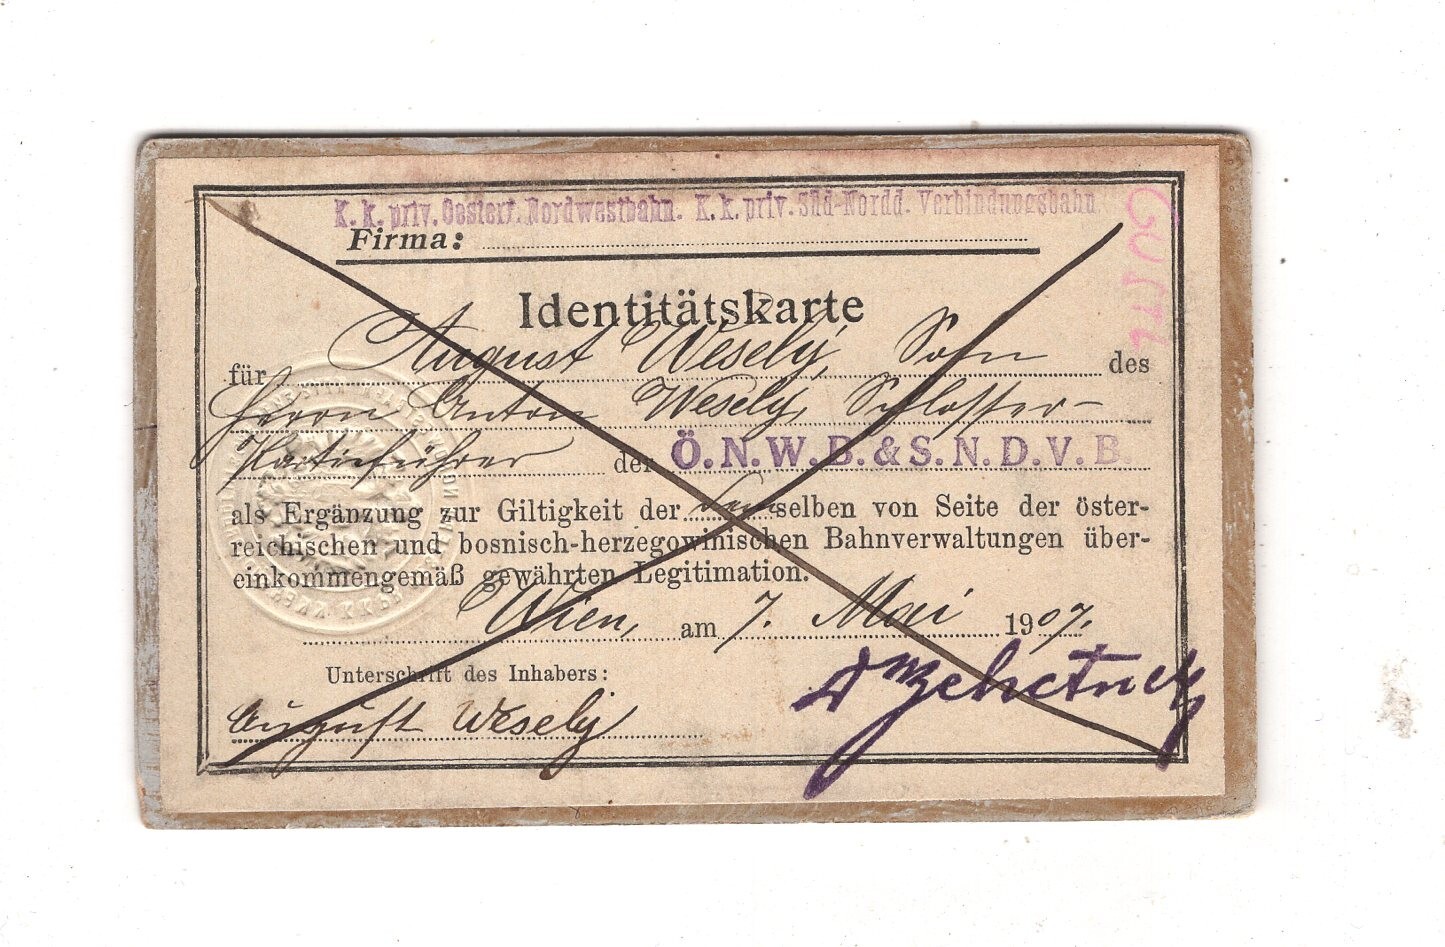 K. k. priv. Oesterr. Nordwestbahn. K. k. priv. Süd-Nordd. Verbindungsbahn
Firma:
Identitätskarte
für August Wesely, Sohn des
Herrn Anton Wesely, Schlosser-
Partieführer der Ö.N.W.B.&S.N.D.V.B.
als Ergänzung zur Giltigkeit der demselben von Seite der öster-
reichischen und bosnisch-herzegowinischen Bahnverwaltungen über-
einkommengemäß gewährten Legitimation.
Wien, am 7. Mai 1907.
Unterschrift des Inhabers:
August Wesely